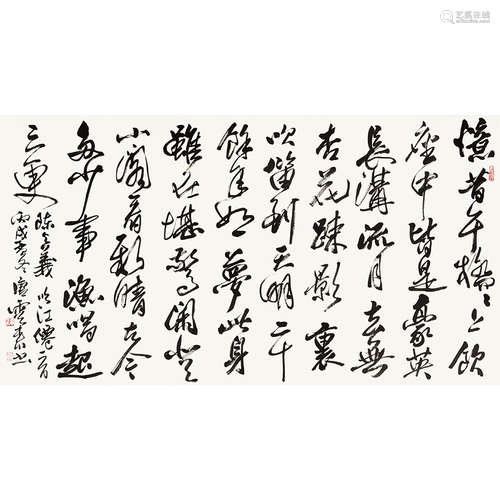 憶昔午橋々上飲
座中皆是豪英
長溝流月去無
杏花疎影裏
吹笛到天明二十
餘年如夢此身
雖在堪驚閒登
小閣看新晴古今
多少事漁唱起
三更
陳與義臨江僊一首
丙戌冬唐雲來書
艺狐在线